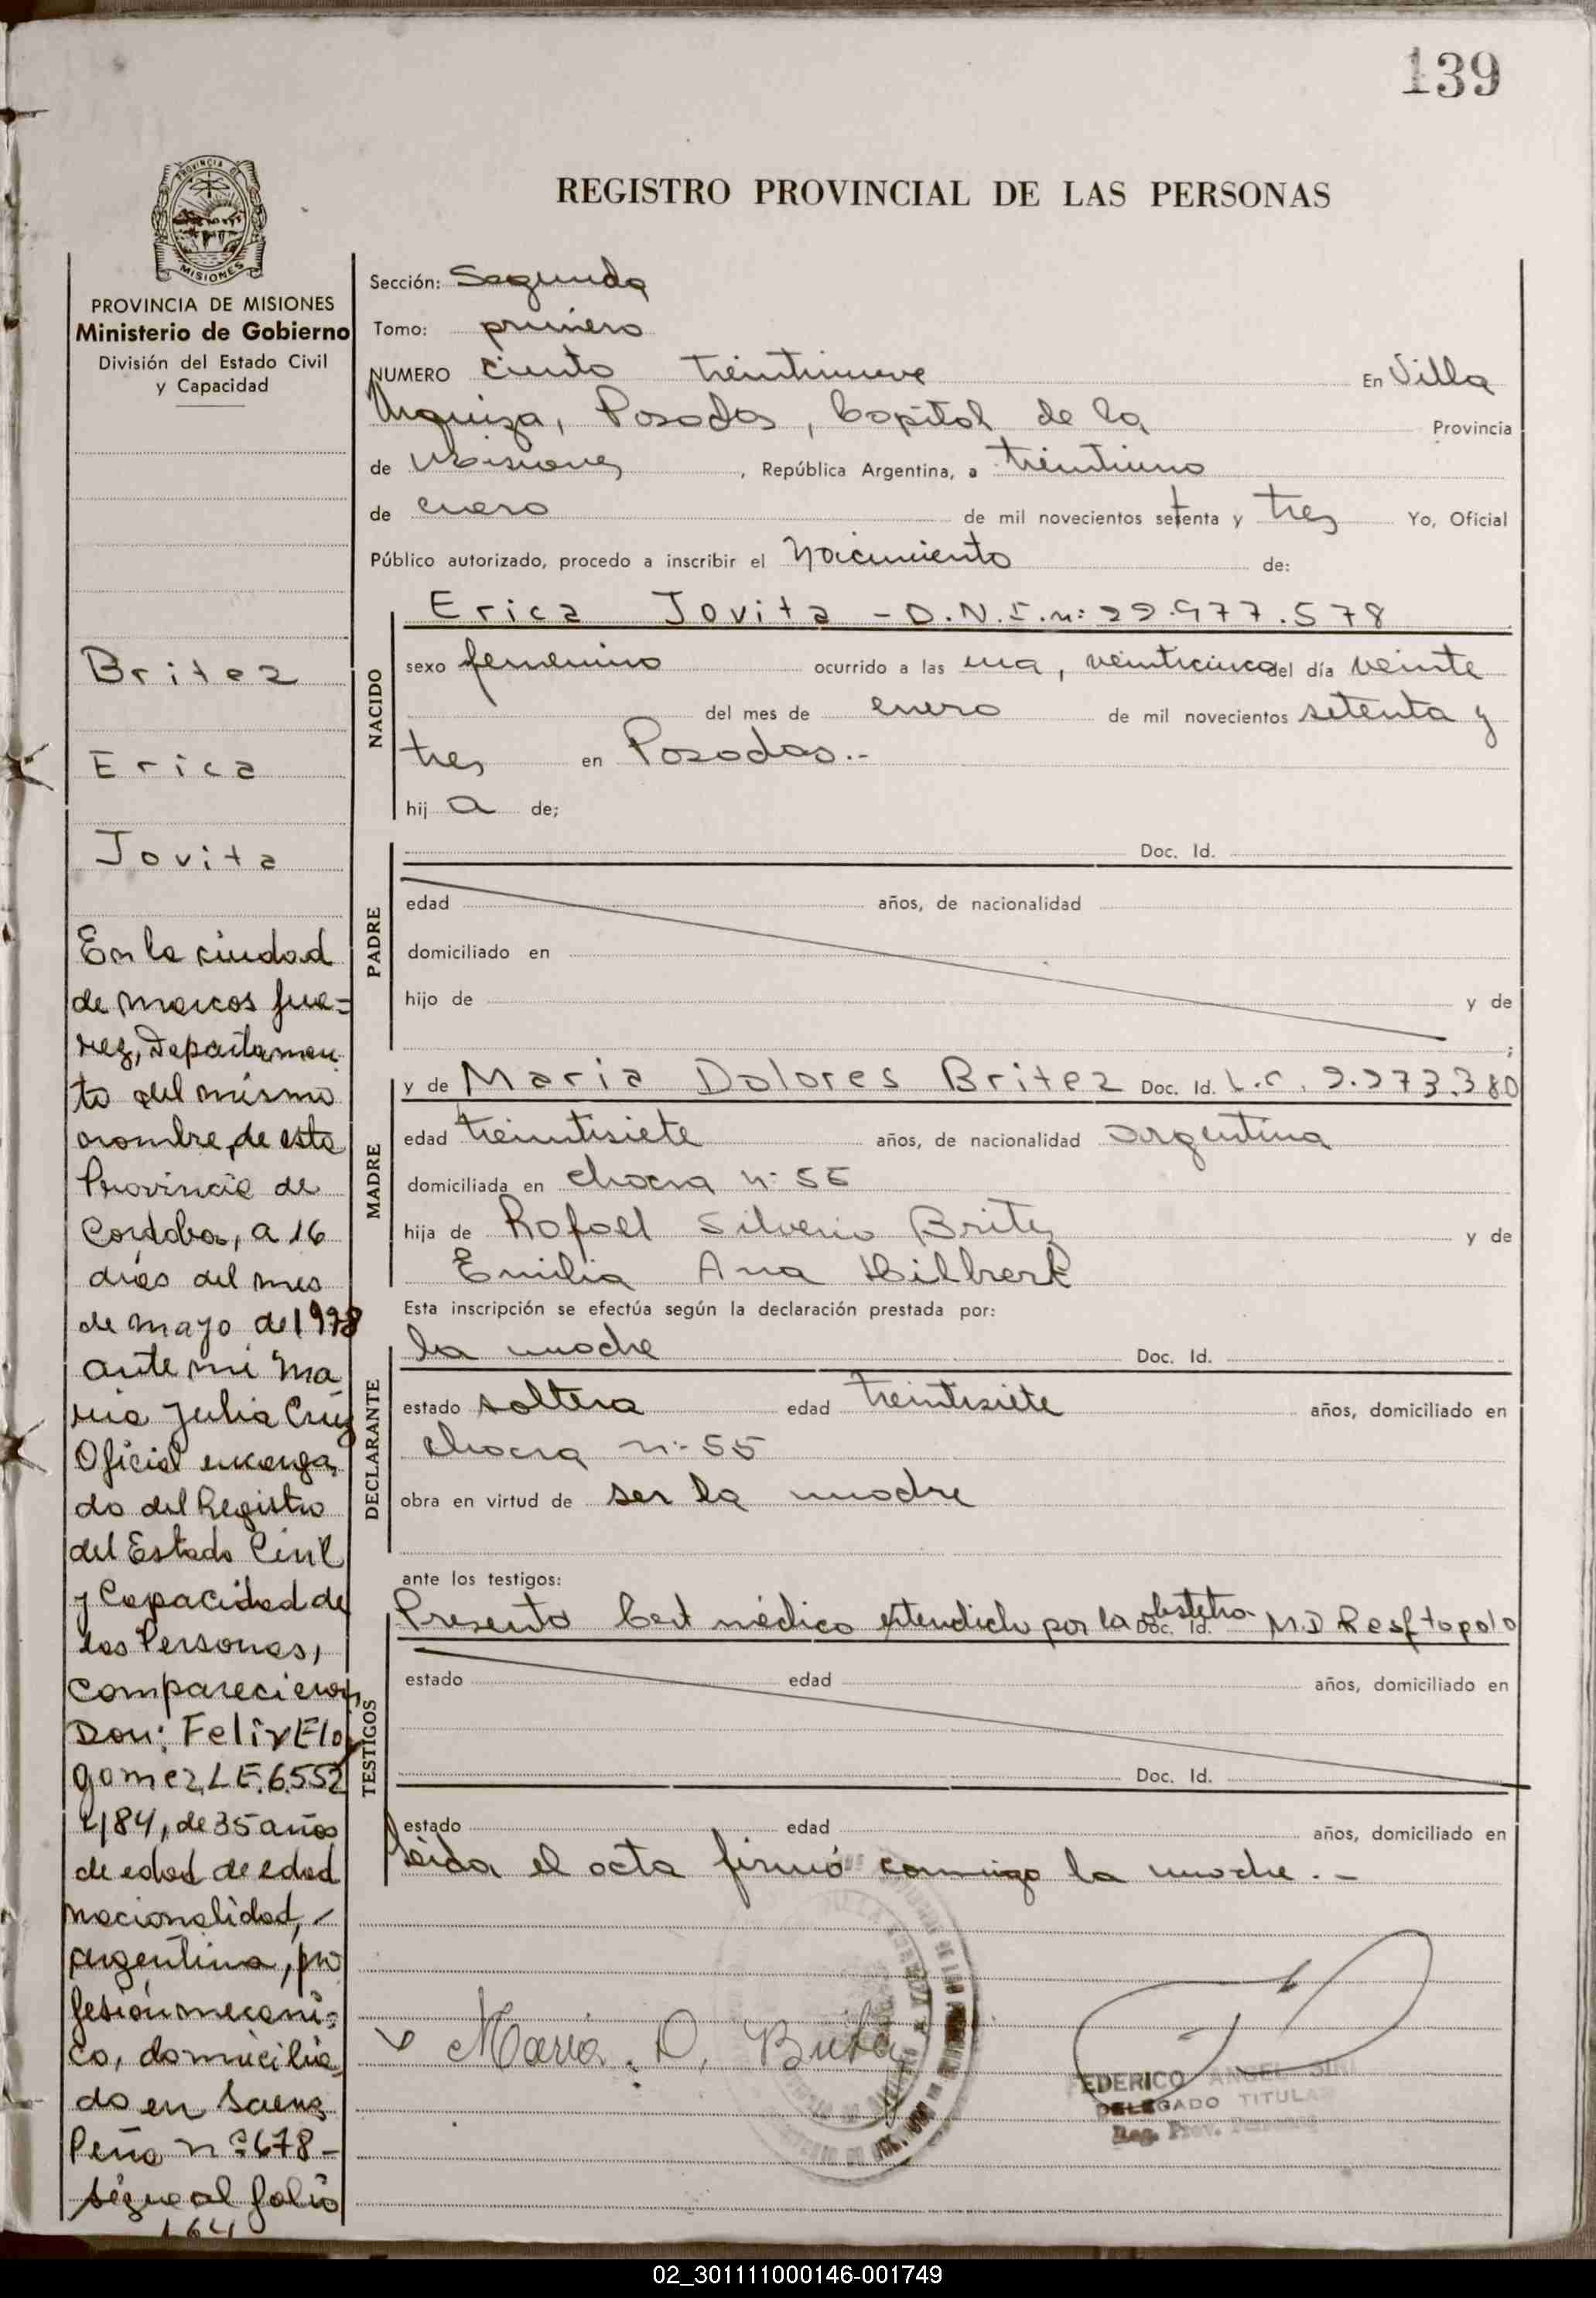 139
PROVINCIA DE
MISIONES
PROVINCIA DE MISIONES
Ministerio de Gobierno
División del Estado Civil
y Capacidad
Britez
Erica
Jovita
En la ciudad
de Marcos Jua=
rez, Departamen
to del mismo
nombre, de esta
Provincia de
Cordoba, a 16
dias del mes
de mayo de 1978
ante mi Ma
ria Julia Cruz
Oficial encarga
do del Registro
del Estado Civil
y Capacidad de
las Personas,
comparecieron
Don: Felix Elo
gomez, L.E. 6.552
484, de 35 años
de edad de edad
nacionalidad, -
argentina, pro
fesión mecani=
co, domicilia
do en Saenz
Peña nº 678 -
sigue al folio
164
REGISTRO PROVINCIAL DE LAS PERSONAS
Sección: Segunda
Tomo: primero
NUMERO ciento treintinueve En Villa
Urquiza, Posadas, Capital de la Provincia
de Misiones, República Argentina, a treintiuno
de enero de mil novecientos setenta y tres Yo, Oficial
Público autorizado, procedo a inscribir el Nacimiento de:
NACIDO
Erica Jovita - D.N.I. n: 22.977.578
sexo femenino ocurrido a las una, veinticinco del día veinte
del mes de enero de mil novecientos setenta y
tres en Posadas.-
hij a de;
PADRE
Doc. Id.
edad años, de nacionalidad
domiciliado en
hijo de y de
;
MADRE
y de Maria Dolores Britez Doc. Id. L.C. 2.273.380
edad treintisiete años, de nacionalidad argentina
domiciliada en chacra n: 55
hija de Rafael Silverio Britez y de
Emilia Ana
Esta inscripción se efectúa según la declaración prestada por:
DECLARANTE
la madre Doc. Id.
estado soltera edad treintisiete años, domiciliado en
chacra n:- 55
obra en virtud de ser la madre
ante los testigos:
TESTIGOS
Presento Cert médico extendido por la obstetra Doc. Id. M.D
estado edad años, domiciliado en
Doc. Id.
estado edad años, domiciliado en
Leida el acta firmó conmigo la madre.-
Maria. D. Britez
FEDERICO ANGEL
DELEGADO TITULAR
Reg. Prov. Personas
02_301111000146-001749